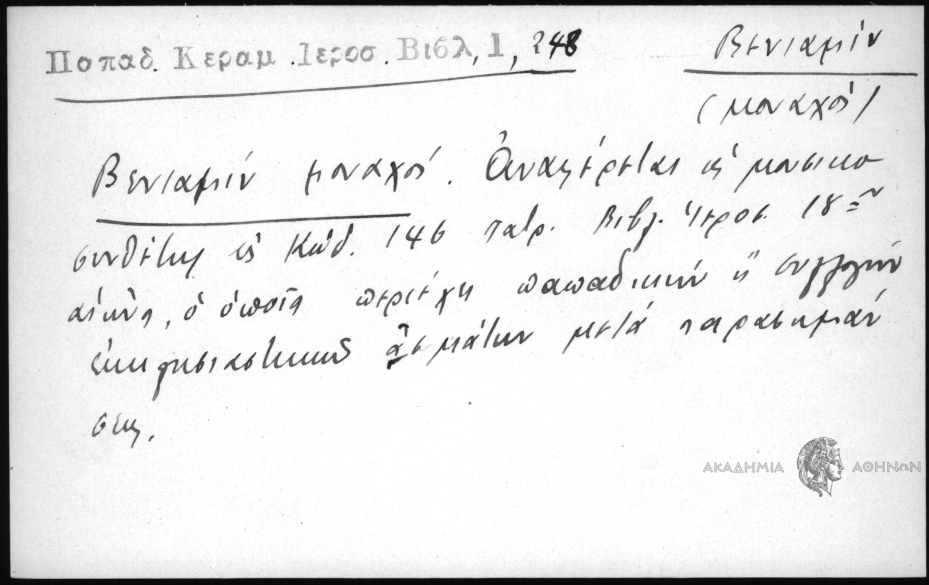 Παπαδ. Κεραμ. Ιεροσ. Βιβλ, 1, 248
Βενιαμίν
(μοναχός)
Βενιαμίν μοναχός. Ἀναφέρεται ὡς μουσικο
συνθέτης εἰς Κώδ. 146 πατρ. Βιβλ. Ἱεροσ. 18ου
αἰῶνος, ὁ ὁποῖος περιέχει παπαδικήν ἤ συλλογήν
ἐκκλησιαστικῶν ἀσμάτων μετά παρασημάν
σεως.
ΑΚΑΔΗΜΙΑ ΑΘΗΝΩΝ